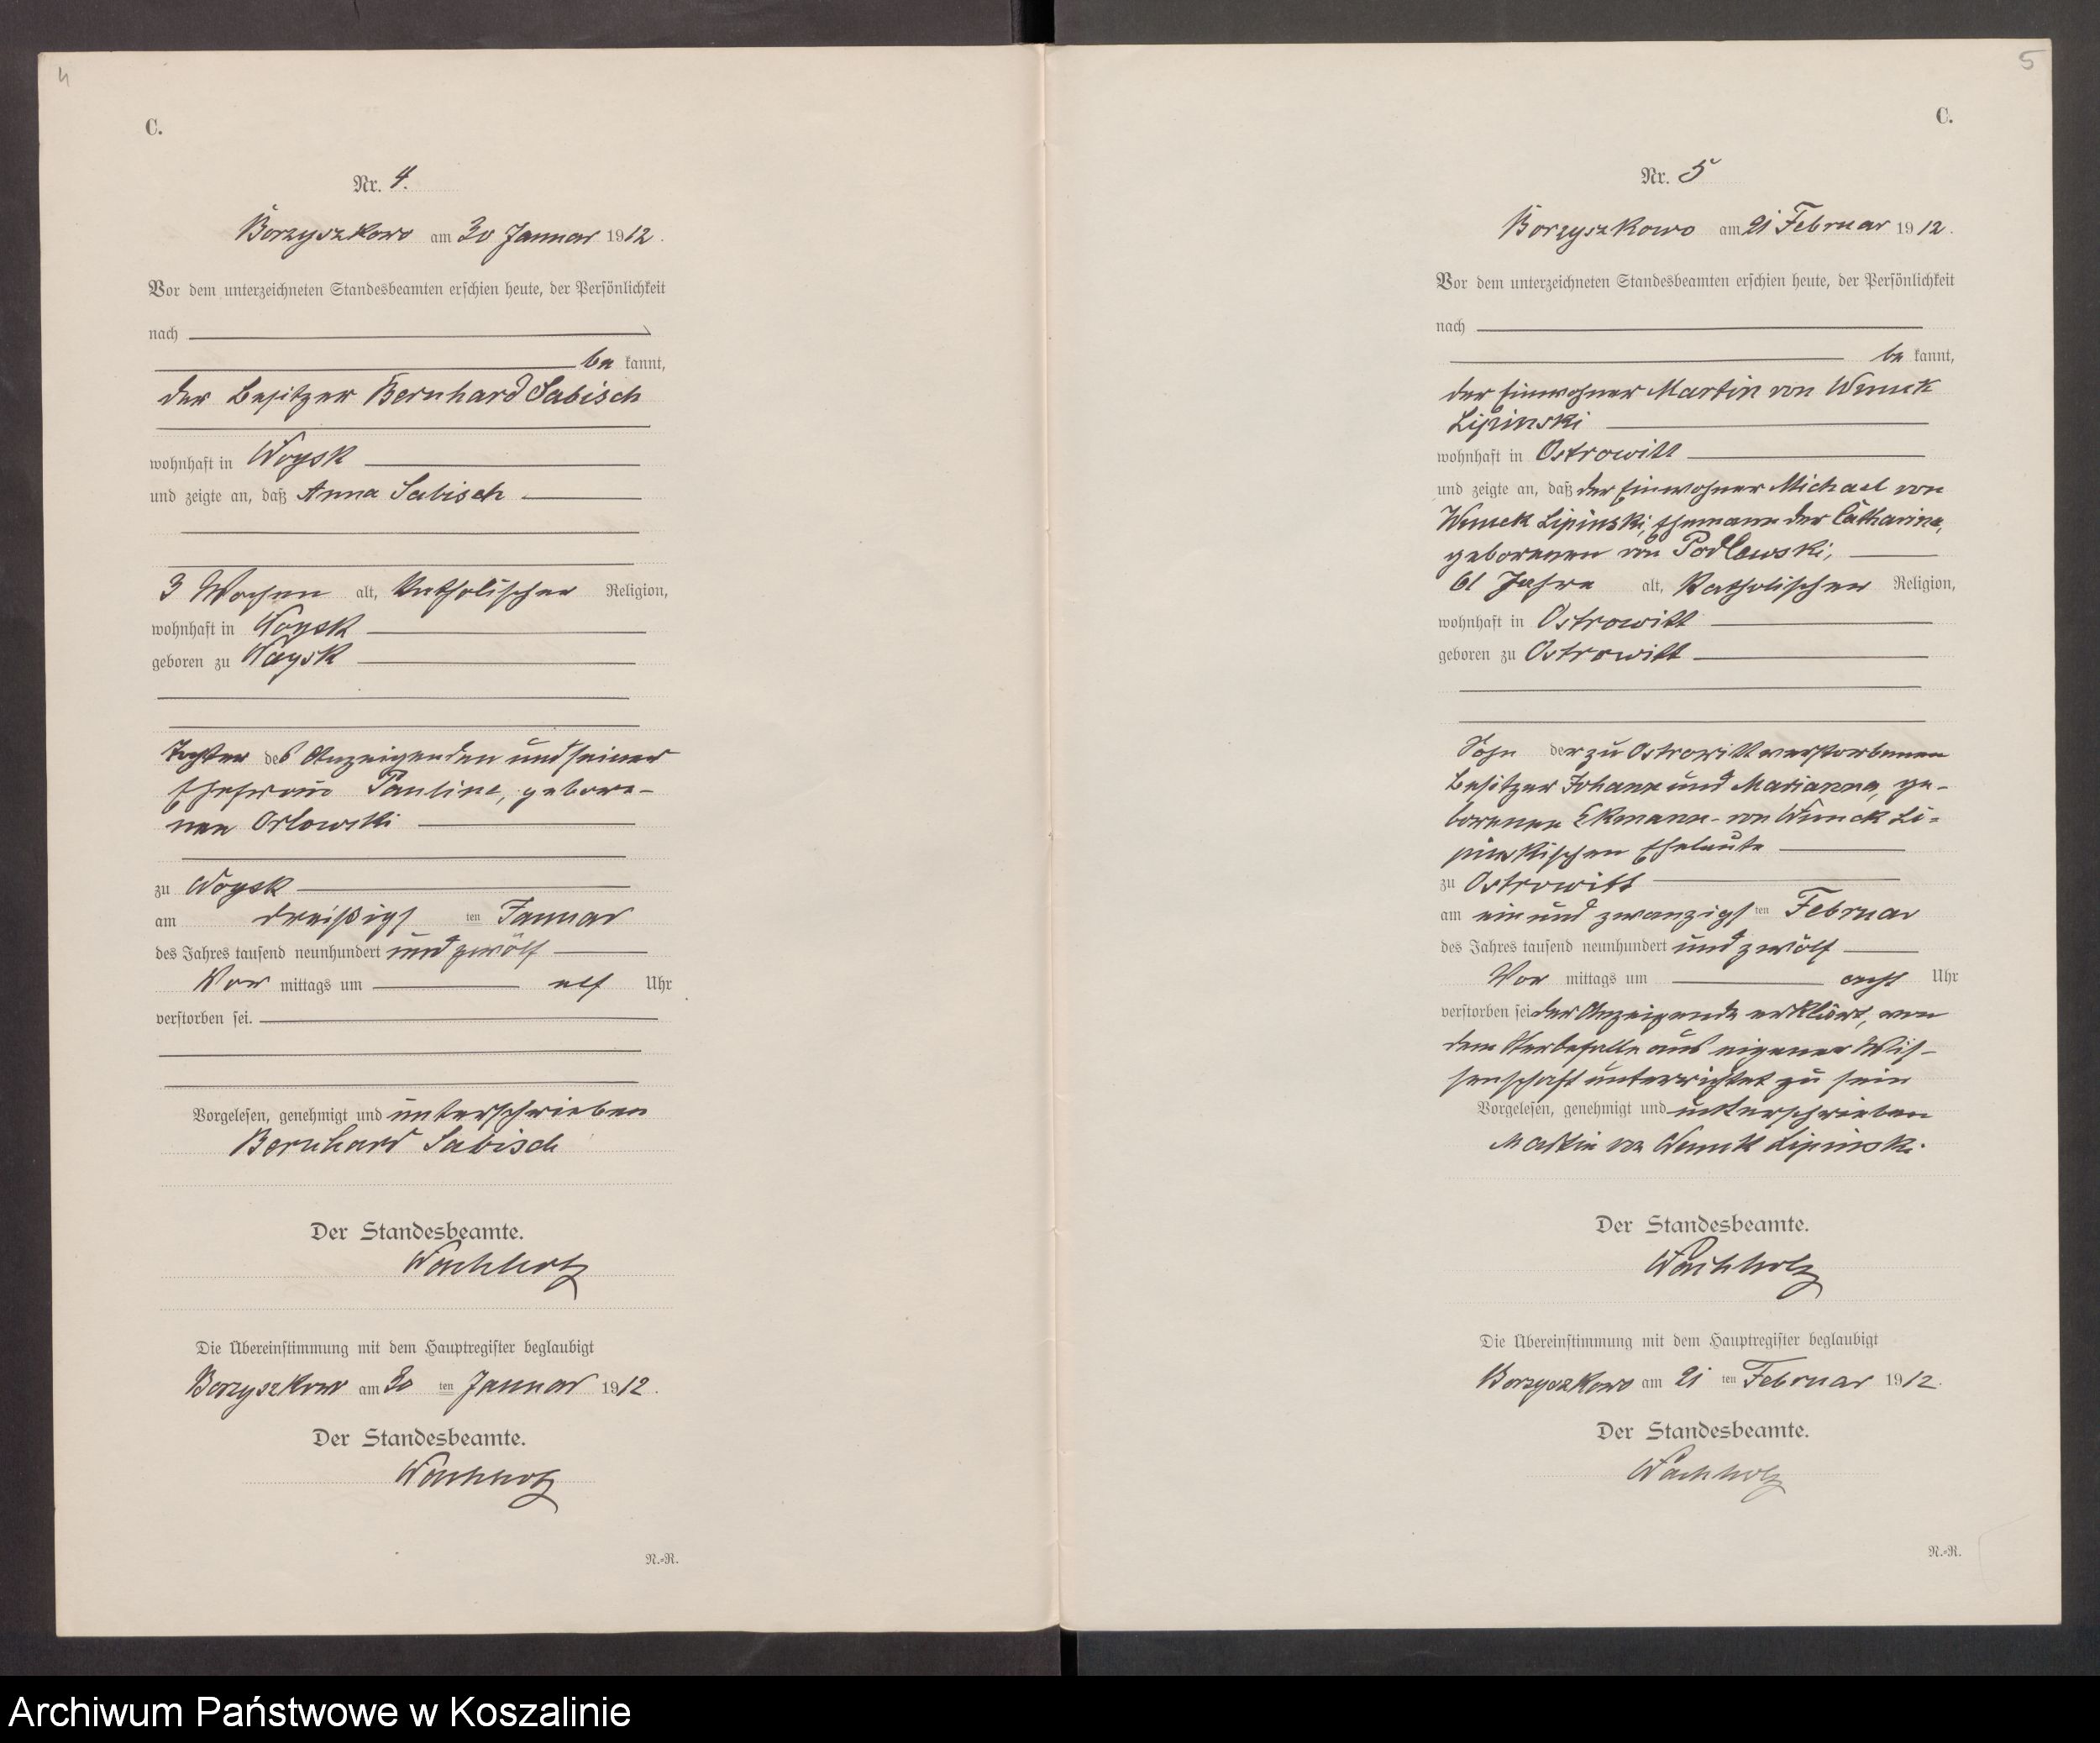 4
C.
Nr. 4.
Borzyszkowo am 30 Januar 1912.
Vor dem unterzeichneten Standesbeamten erschien heute, der Persönlichkeit
nach
be kannt,
der Besitzer Bernhard Sabisch
wohnhaft in Woysk
und zeigte an, daß Anna Sabisch
3 Wochen alt, katholischer Religion,
wohnhaft in Woysk
geboren zu Woysk
Tochter des Anzeigenden und seiner
Ehefrau Pauline, gebore-
nen Orlowski
zu Woysk
am dreißigs ten Januar
des Jahres tausend neunhundert und zwölf
Vor mittags um elf Uhr
verstorben sei.
Vorgelesen, genehmigt und unterschrieben
Bernhard Sabisch
Der Standesbeamte.
Wachholz
Die Übereinstimmung mit dem Hauptregister beglaubigt
Borzyszkowo am 30 ten Januar 1912.
Der Standesbeamte.
Wachholz
N.-R.
5
C.
Nr. 5
Borzyszkowo am 21 Februar 1912.
Vor dem unterzeichneten Standesbeamten erschien heute, der Persönlichkeit
nach
be kannt,
der Einwohner Martin von Wnuck
Lipinski
wohnhaft in Ostrowitt
und zeigte an, daß der Einwohner Michael von
Wnuck Lipinski, Ehemann der Catharina,
geborenen von Podlowski,
61 Jahre alt, katholischer Religion,
wohnhaft in Ostrowitt
geboren zu Ostrowitt
Sohn der zu Ostrowitt verstorbenen
Besitzer Johann und Marianna, ge-
borenen Ekmann- von Wnuck Li-
pinskischen Eheleute
zu Ostrowitt
am ein und zwanzigs ten Februar
des Jahres tausend neunhundert und zwölf
Vor mittags um acht Uhr
verstorben sei der Anzeigende erklärt, von
dem Sterbefalle aus eigener Wis-
senschaft unterrichtet zu sein
Vorgelesen, genehmigt und unterschrieben
Martin von Wnuck Lipinski.
Der Standesbeamte.
Wachholz
Die Übereinstimmung mit dem Hauptregister beglaubigt
Borzyszkowo am 21 ten Februar 1912.
Der Standesbeamte.
Wachholz
N.-R.
Archiwum Państwowe w Koszalinie